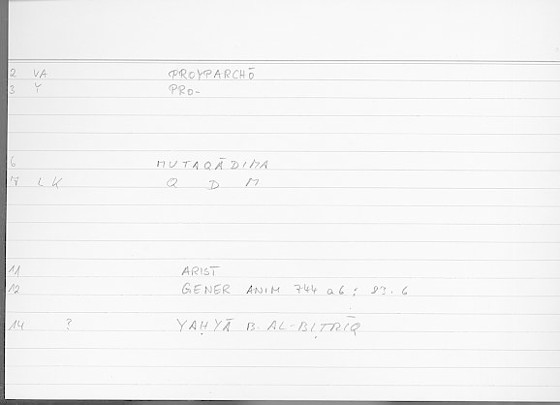 2 VA PROYPARCHŌ
3 Y PRO-
6 MUTAQĀDIMA
18 LK Q D M
11 ARIST
12 GENER ANIM 744 a6 : 83.6
14 ? YAḤYĀ B. AL-BIṬRĪQ